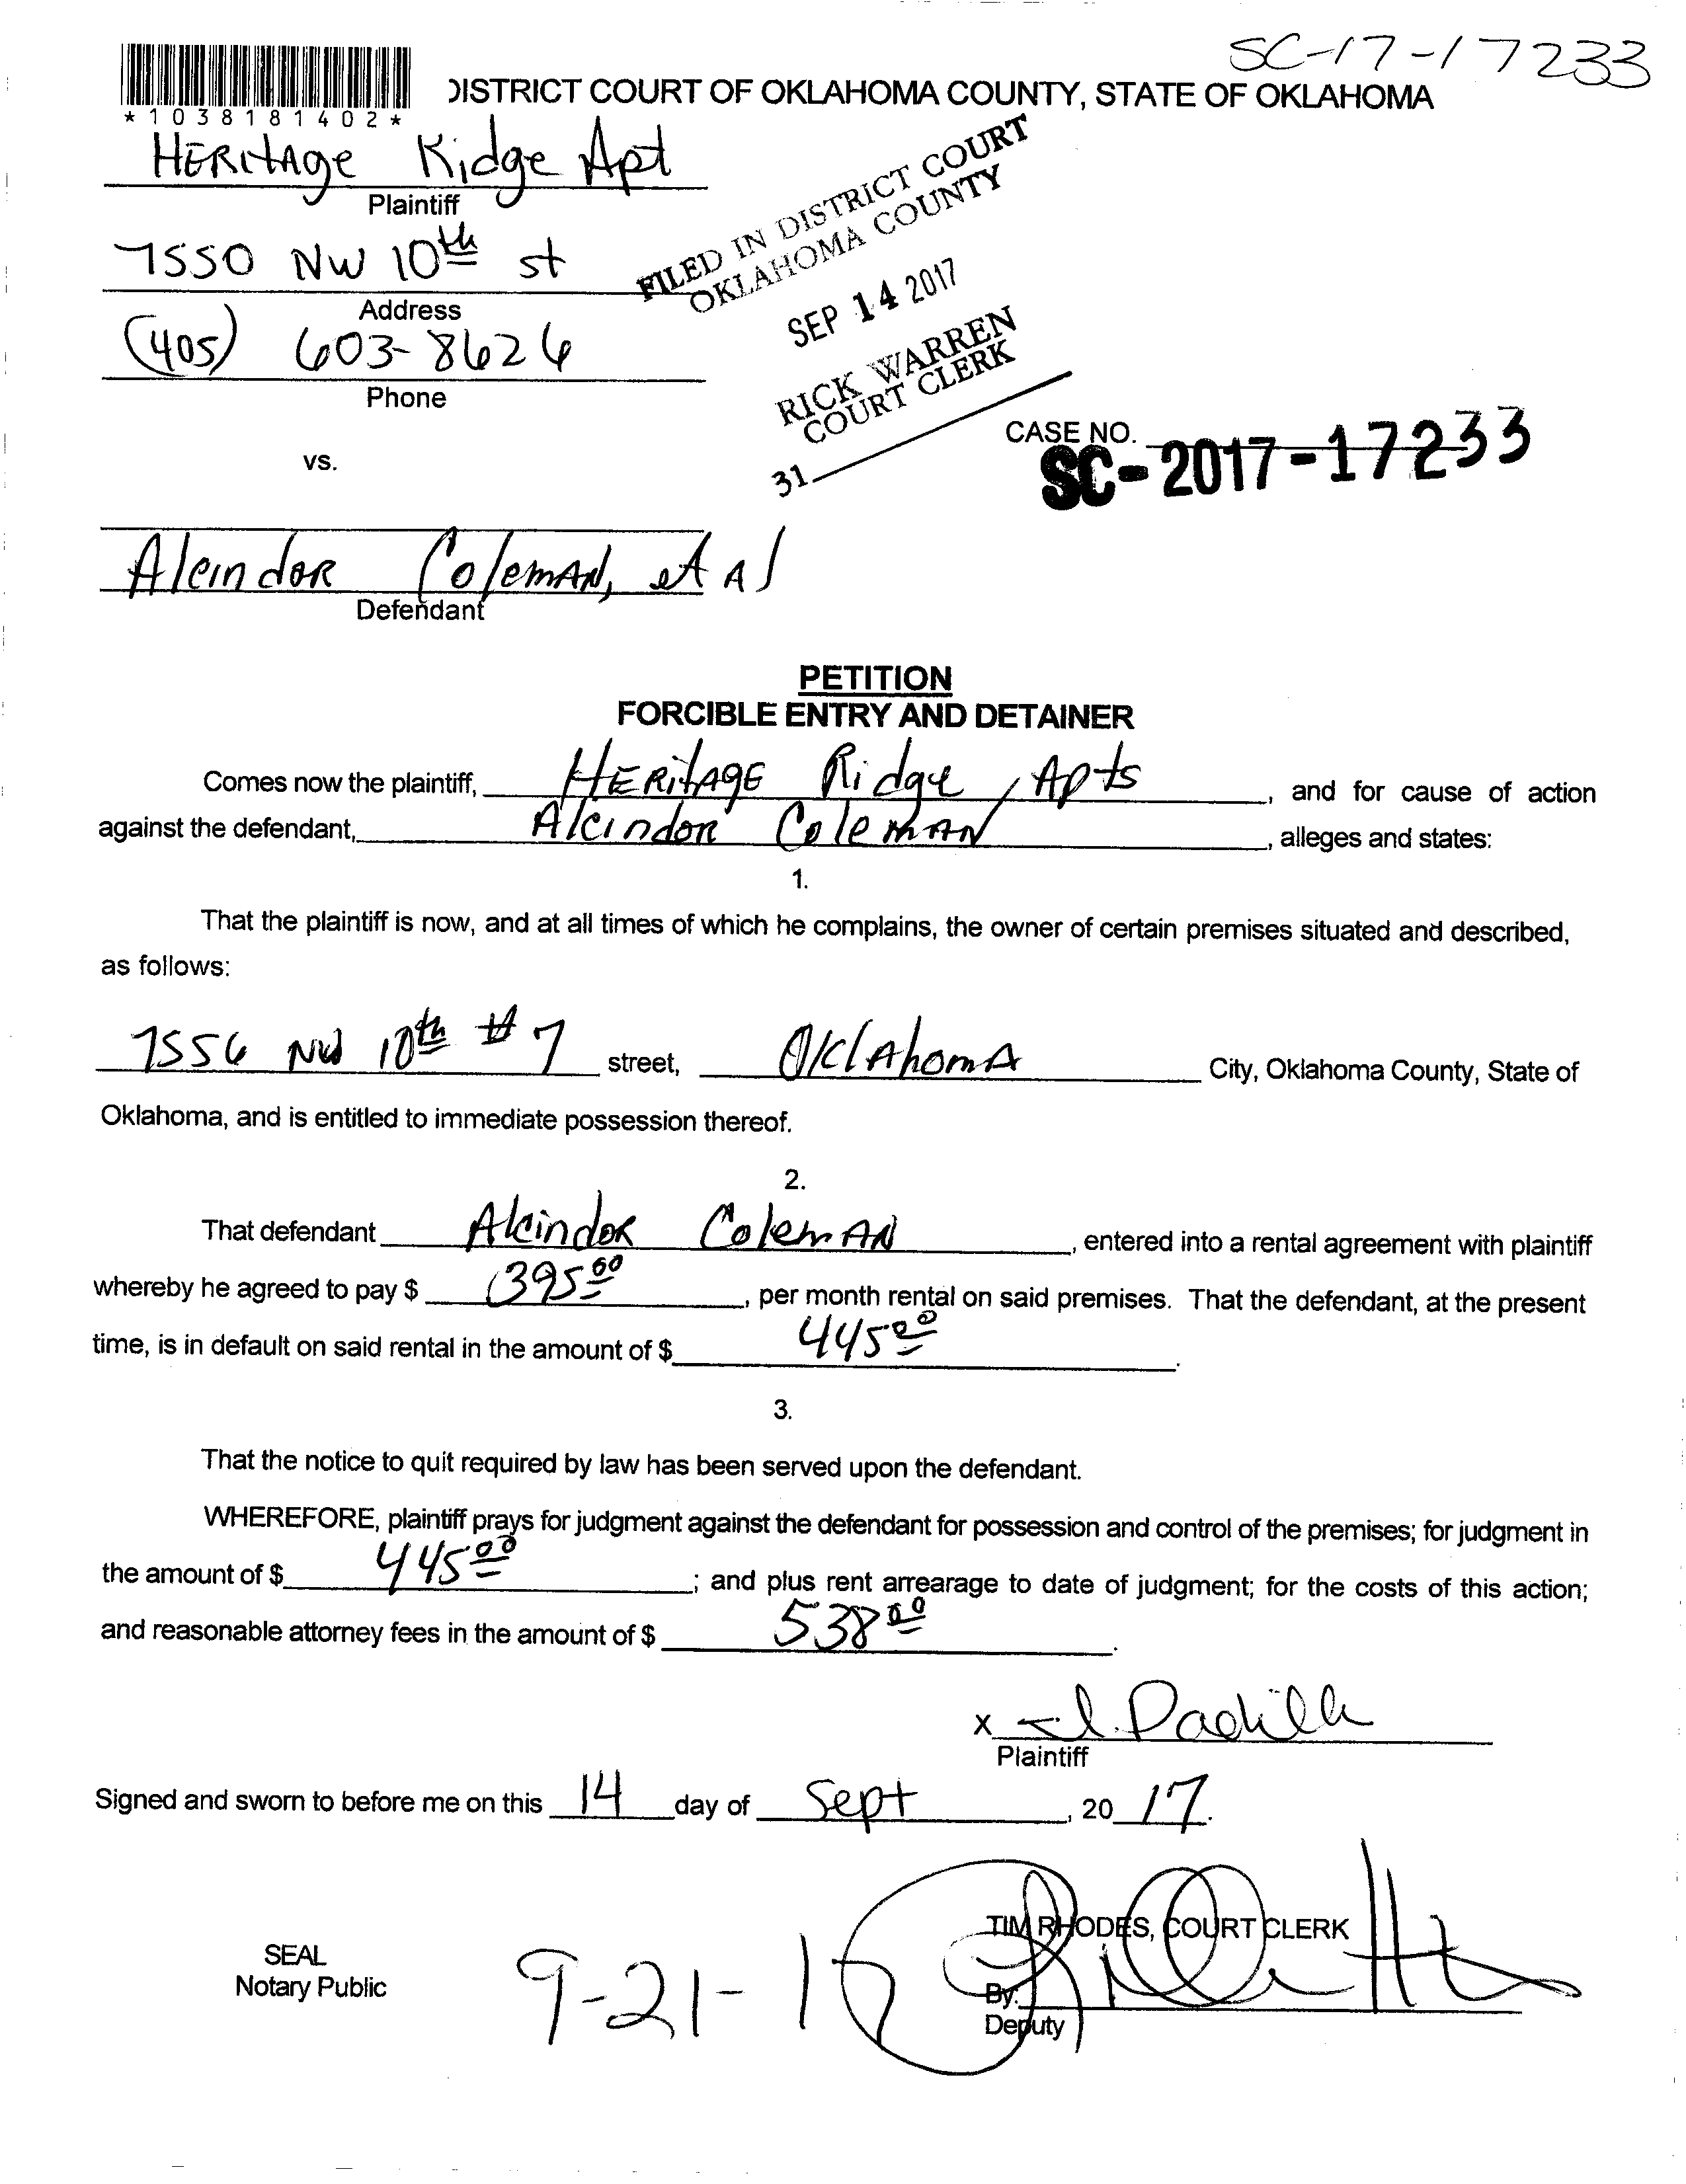 SC-17-17233
DISTRICT COURT OF OKLAHOMA COUNTY, STATE OF OKLAHOMA
*1038181402*
HERitAge Ridge Apt
Plaintiff
7550 NW 10th st
Address
(405) 603-8626
Phone
FILED IN DISTRICT COURT
OKLAHOMA COUNTY
SEP 14 2017
RICK WARREN
COURT CLERK
31
CASE NO.
SC-2017-17233
vs.
Alcindor Coleman, et Al
Defendant
PETITION
FORCIBLE ENTRY AND DETAINER
Comes now the plaintiff, HERitAGE Ridge Apts, and for cause of action
against the defendant, Alcindor Coleman, alleges and states:
1.
That the plaintiff is now, and at all times of which he complains, the owner of certain premises situated and described,
as follows:
7556 NW 10th #7 street, OklAhomA City, Oklahoma County, State of
Oklahoma, and is entitled to immediate possession thereof.
2.
That defendant Alcindor Coleman, entered into a rental agreement with plaintiff
whereby he agreed to pay $ 395 00, per month rental on said premises. That the defendant, at the present
time, is in default on said rental in the amount of $ 445 00.
3.
That the notice to quit required by law has been served upon the defendant.
WHEREFORE, plaintiff prays for judgment against the defendant for possession and control of the premises; for judgment in
the amount of $ 445 00; and plus rent arrearage to date of judgment; for the costs of this action;
and reasonable attorney fees in the amount of $ 538 00.
x Padilla
Plaintiff
Signed and sworn to before me on this 14 day of Sept, 20 17.
TIM RHODES, COURT CLERK
SEAL
Notary Public
9-21-17
By:
Deputy